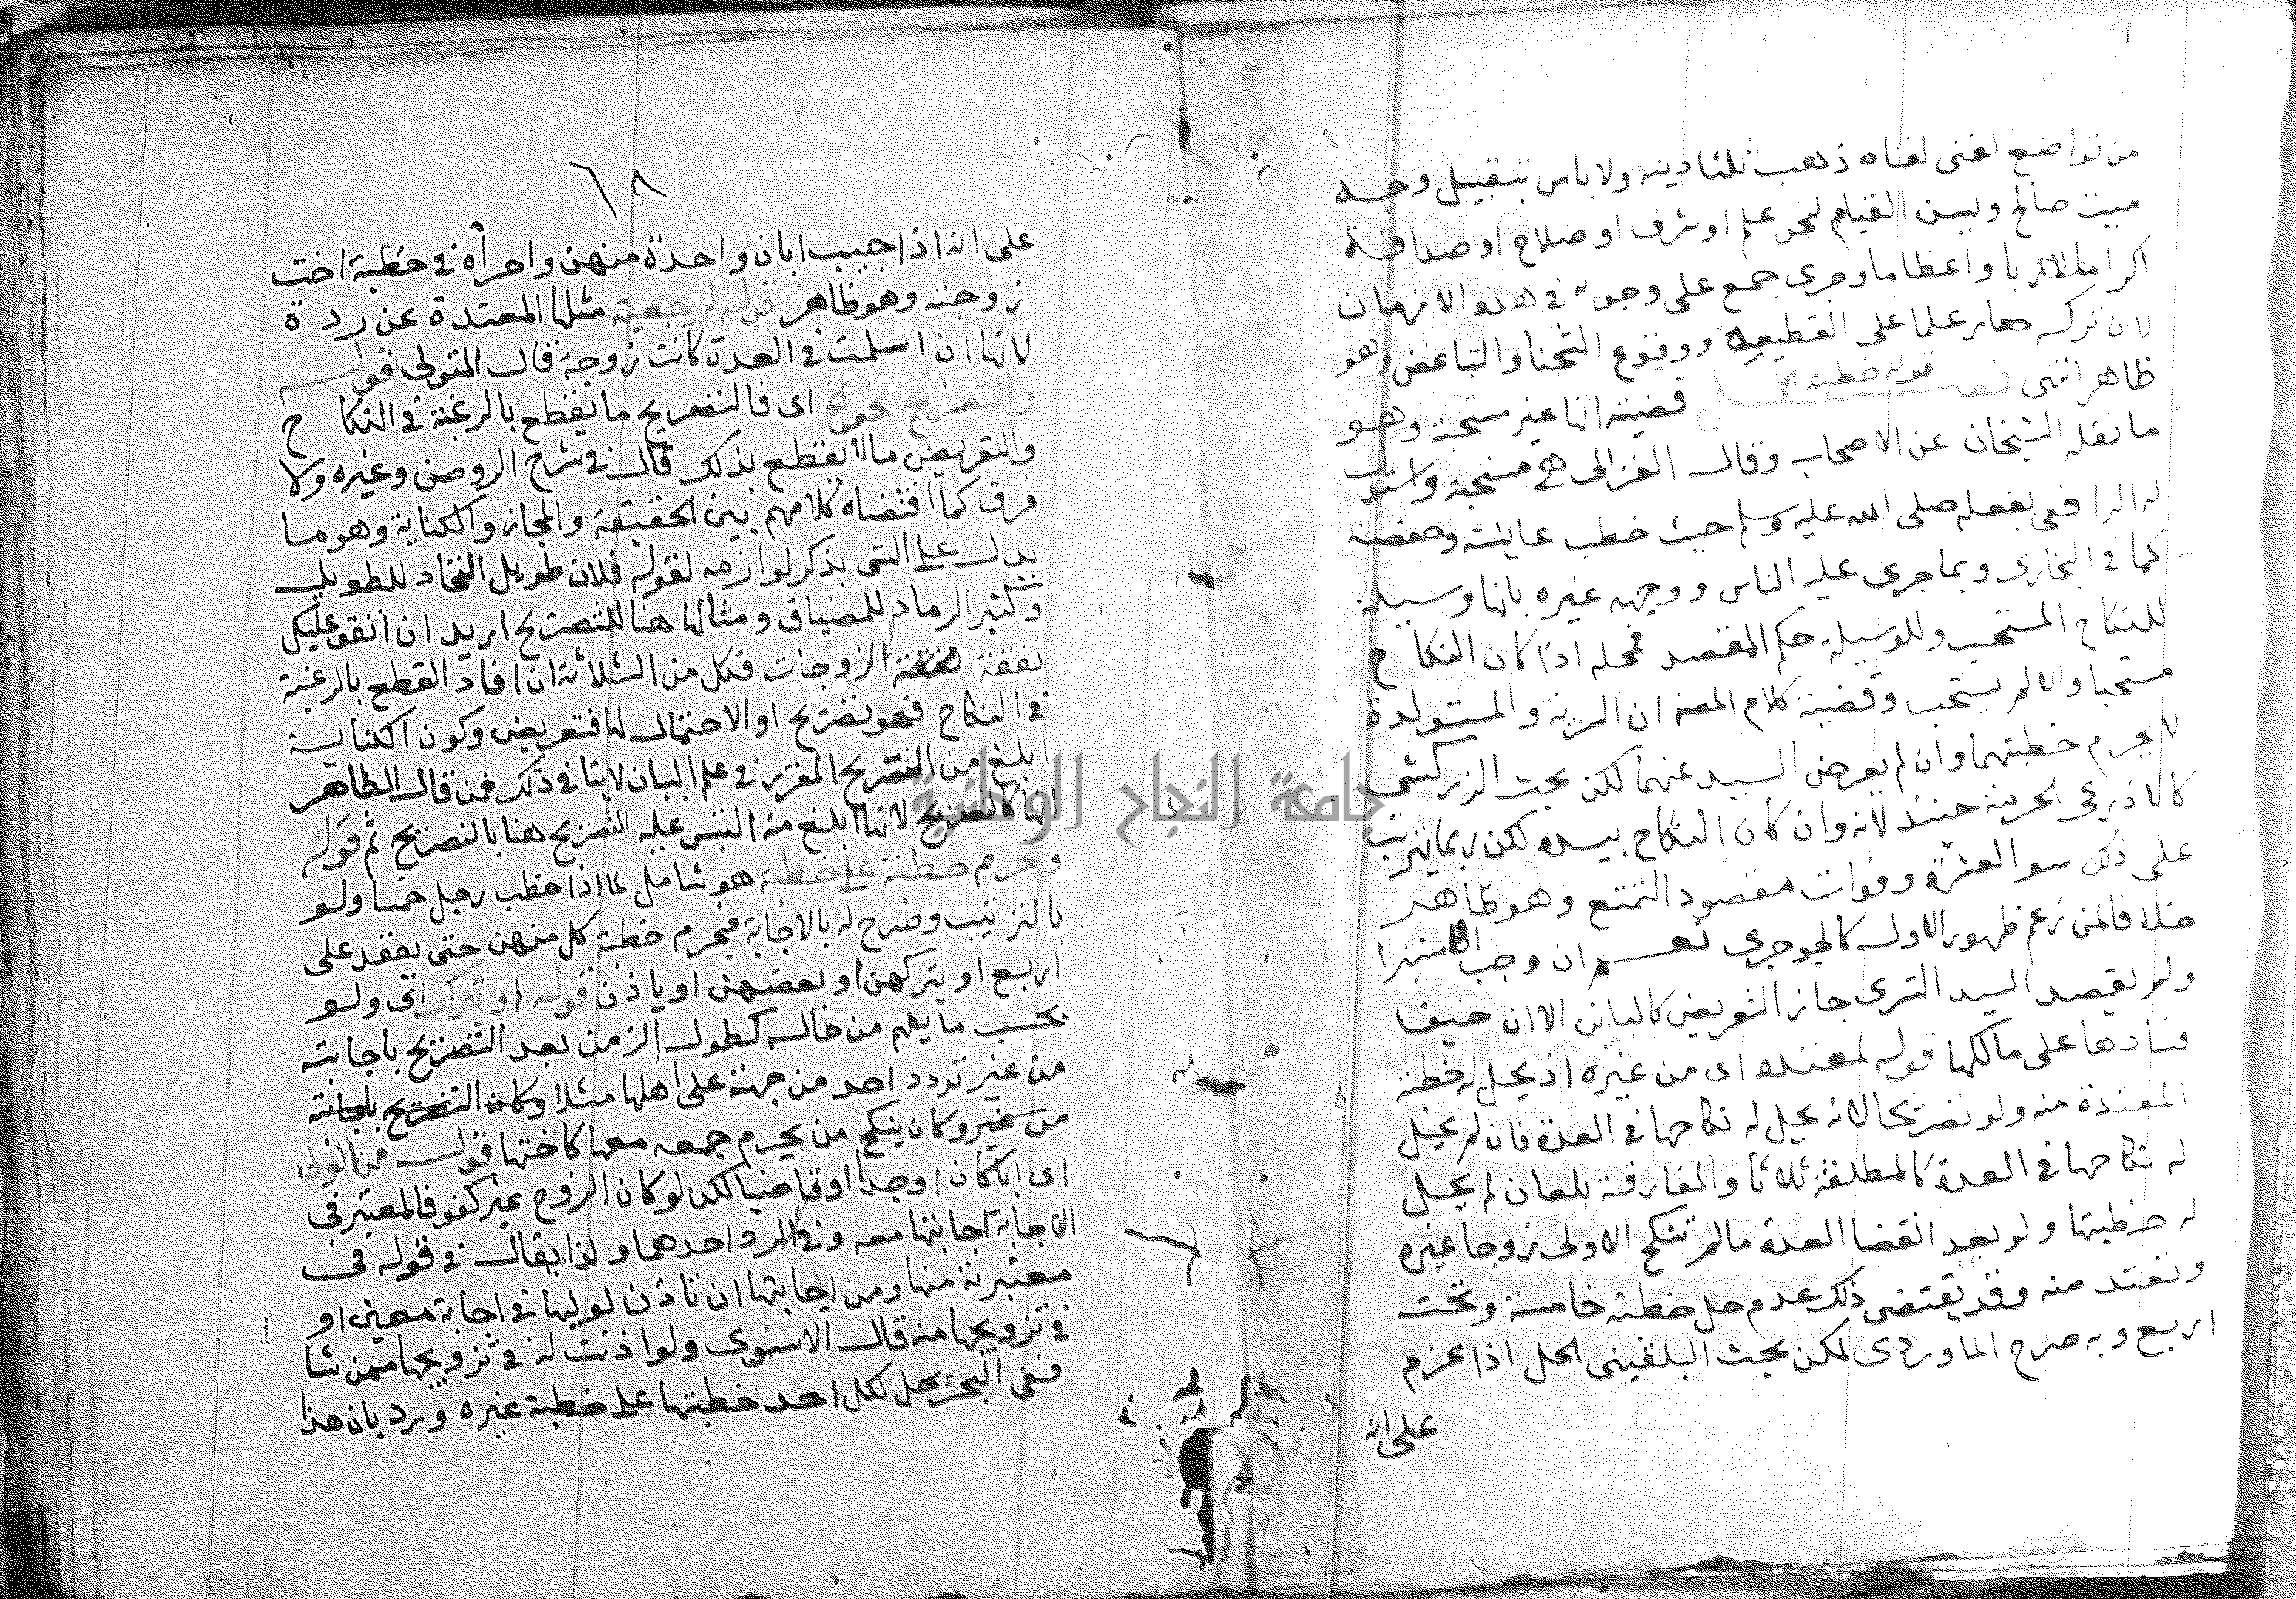 من تواضع لغنى لغناه ذهب ثلثا دينه ولا باس بتقبيل وجه
ميت صالح ويسن القيام لنحو علم او شرف او صلاح او صداقة
اكراما لا ريا واعظاما وجرى جمع على وجوبه في هذه الازمان
لان تركه صار علما على القطيعة ووقوع الشحنا والتباغض وهو
ظاهر انتهى قوله خطبة الخ قضيته انها غير مستحبة وهو
ما نقله الشيخان عن الاصحاب وقال الغزالى هي مستحبة واستدل
له الرافعى بفعله صلى الله عليه وسلم حيث خطب عايشة وحفصة
كما في البخارى وبما جرى عليه الناس ووجهه غيره بانها وسيلة
للنكاح المستحب وللوسيلة حكم المقصد فمحله اذا كان النكاح
مستحبا والا لم يستحب وقضية كلام المصه ان السرية والمستولدة
لا يحرم خطبتهما وان لم يعرض السيد عنهما لكن بحث الزركشى
كالاذرعى الحرمة حينئذ لانه وان كان النكاح بيده لكن ربما يترتب
على ذلك سوالعشرة وفوات مقصود التمتع وهو ظاهر
خلافا لمن زعم ظهور الاول كالجوجرى نعم ان وجب الاستبرا
ولم يقصد السيد التسرى جاز التعريض كالباين الا ان خيف
فسادها على مالكها قوله لمعتدة اى من غيره اذ يحل له خطبة
المعتدة منه ولو تصريحا لانه يحل له نكاحها في العدة فان لم يحل
له نكاحها في العدة كالمطلقة ثلاثا والمفارقة بلعان لم يحل
له خطبتها ولو بعد انقضا العدة ما لم تنكح الاولى زوجا غيره
وتعتد منه وقد يقتضى ذلك عدم حل خطبة خامسة وتحته
اربع وبه صرح الماوردى لكن بحث البلقينى الحل اذا عزم
على انه
٦٨
على انه اذا اجيب ابان واحدة منهن وامرأة في خطبة اخت
زوجته وهو ظاهر قوله لرجعية مثلها المعتدة عن ردة
لانها ان اسلمت في العدة كانت زوجة قال المتولى قوله
والتصريح نحو الخ اى فالتصريح ما يقطع بالرغبة في النكاح
والتعريض مالا يقطع بذلك قال في شرح الروض وغيره ولا
فرق كما اقتضاه كلامهم بين الحقيقة والمجاز والكناية وهو ما
يدل على الشى بذكر لوازمه لقوله فلان طويل النجاد للطويل
وكثير الرماد للمضياف ومثالها هنا للتصريح اريد ان انفق عليك
نفقة الزوجات فكل من الثلاثة ان افاد القطع بالرغبة
في النكاح فهو تصريح او الاحتمال لها فتعريض وكون الكناية
ابلغ من التصريح المقرر في علم البيان لا ينافي ذلك فمن قال الظاهر
انها كالتصريح لانها ابلغ منه التبس عليه التصريح هنا بالتصريح ثم قوله
وحرم خطبة على خطبة هو شامل لما اذا خطب رجل خمسا ولو
بالترتيب وصرح له بالاجابة فيحرم خطبة كل منهن حتى يعقد على
اربع او يتركهن او بعضهن او ياذن قوله او ترك اى ولو
بحسب ما يفهم من حاله كطول الزمن بعد التصريح باجابته
من غير تردد احد من جهته على اهلها مثلا وكان التصريح باجابته
من غير وكان ينكح من يحرم جمعه معها كاختها قوله من الولى
اى ابا كان او جدا او قاضيا لكن لو كان الزوج غير كفو فالمعتبر في
الاجابة اجابتها معه وفي الرد احدهما ولذا يقال في قوله في
معتبرته منها ومن اجابتها ان تاذن لوليها في اجابة معين او
في تزويجها منه قال الاسنوى ولو اذنت له في تزويجها ممن شا
ففى البحر يحل لكل احد خطبتها على خطبة غيره ورد بان هذا
جامعة النجاح الوطنية